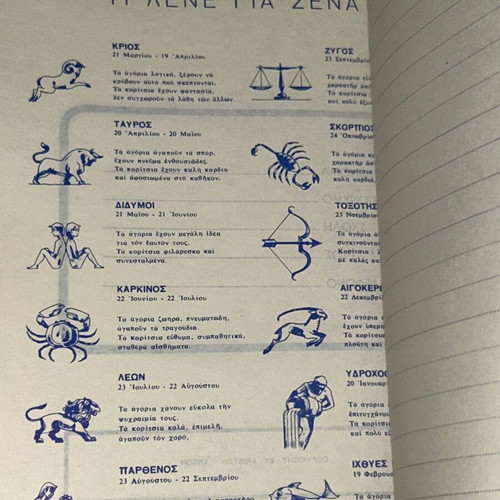 ΤΙ ΛΕΝΕ ΓΙΑ ΣΕΝΑ
ΚΡΙΟΣ
21 Μαρτίου - 19 Ἀπριλίου
Τὰ ἀγόρια λογικά, ξέρουν νὰ
κρύβουν αὐτὸ ποὺ σκέπτονται.
Τὰ κορίτσια ἔχουν φαντασία,
δὲν συγχωροῦν τὰ λάθη τῶν ἄλλων.
ΤΑΥΡΟΣ
20 Ἀπριλίου - 20 Μαΐου
Τὰ ἀγόρια ἀγαποῦν τὰ σπόρ,
ἔχουν πνεῦμα ἐνθουσιῶδες.
Τὰ κορίτσια ἔχουν καλὴ καρδιὰ
καὶ ἀφοσιωμένα στὸ καθῆκον.
ΔΙΔΥΜΟΙ
21 Μαΐου - 21 Ἰουνίου
Τὰ ἀγόρια ἔχουν μεγάλη ἰδέα
γιὰ τὸν ἑαυτόν τους.
Τὰ κορίτσια φιλάρεσκα καὶ
συνεσταλμένα.
ΚΑΡΚΙΝΟΣ
22 Ἰουνίου - 22 Ἰουλίου
Τὰ ἀγόρια ζωηρά, πνευματώδη,
ἀγαποῦν τὰ τραγούδια.
Τὰ κορίτσια εὔθυμα, συμπαθητικά,
σταθερὰ αἰσθήματα.
ΛΕΩΝ
23 Ἰουλίου - 22 Αὐγούστου
Τὰ ἀγόρια χάνουν εὔκολα τὴν
ψυχραιμία τους.
Τὰ κορίτσια καλά, ἐπιμελῆ,
ἀγαποῦν τὸν χορό.
ΠΑΡΘΕΝΟΣ
23 Αὐγούστου - 22 Σεπτεμβρίου
ΖΥΓΟΣ
23 Σεπτεμβρίο
Τὰ ἀγόρια
χαρακτήρ
Τὰ κορίτσια
καὶ πολὺ
ΣΚΟΡΠΙΟΣ
24 Ὀκτωβρίου
Τὰ ἀγόρια
χαρακτήρ
Τὰ κορίτσι
καλὴ καρδιά,
ΤΟΞΟΤΗΣ
23 Νοεμβρίου
Τὰ ἀγόρια
συγκινοῦντα
Κορίτσια :
μὲ καλὲς κα
ΑΙΓΟΚΕΡΩ
22 Δεκεμβρί
Τὰ ἀγόρια
ἔχουν
Τὰ κορίτσι
πλούτη καὶ
ΥΔΡΟΧΟΟ
20 Ἰανουαρί
Τὰ ἀγόρι
ἐπιτυγχάνου
Τὰ κορίτσι
καὶ πολὺ
ΙΧΘΥΕΣ
19 Φεβρου